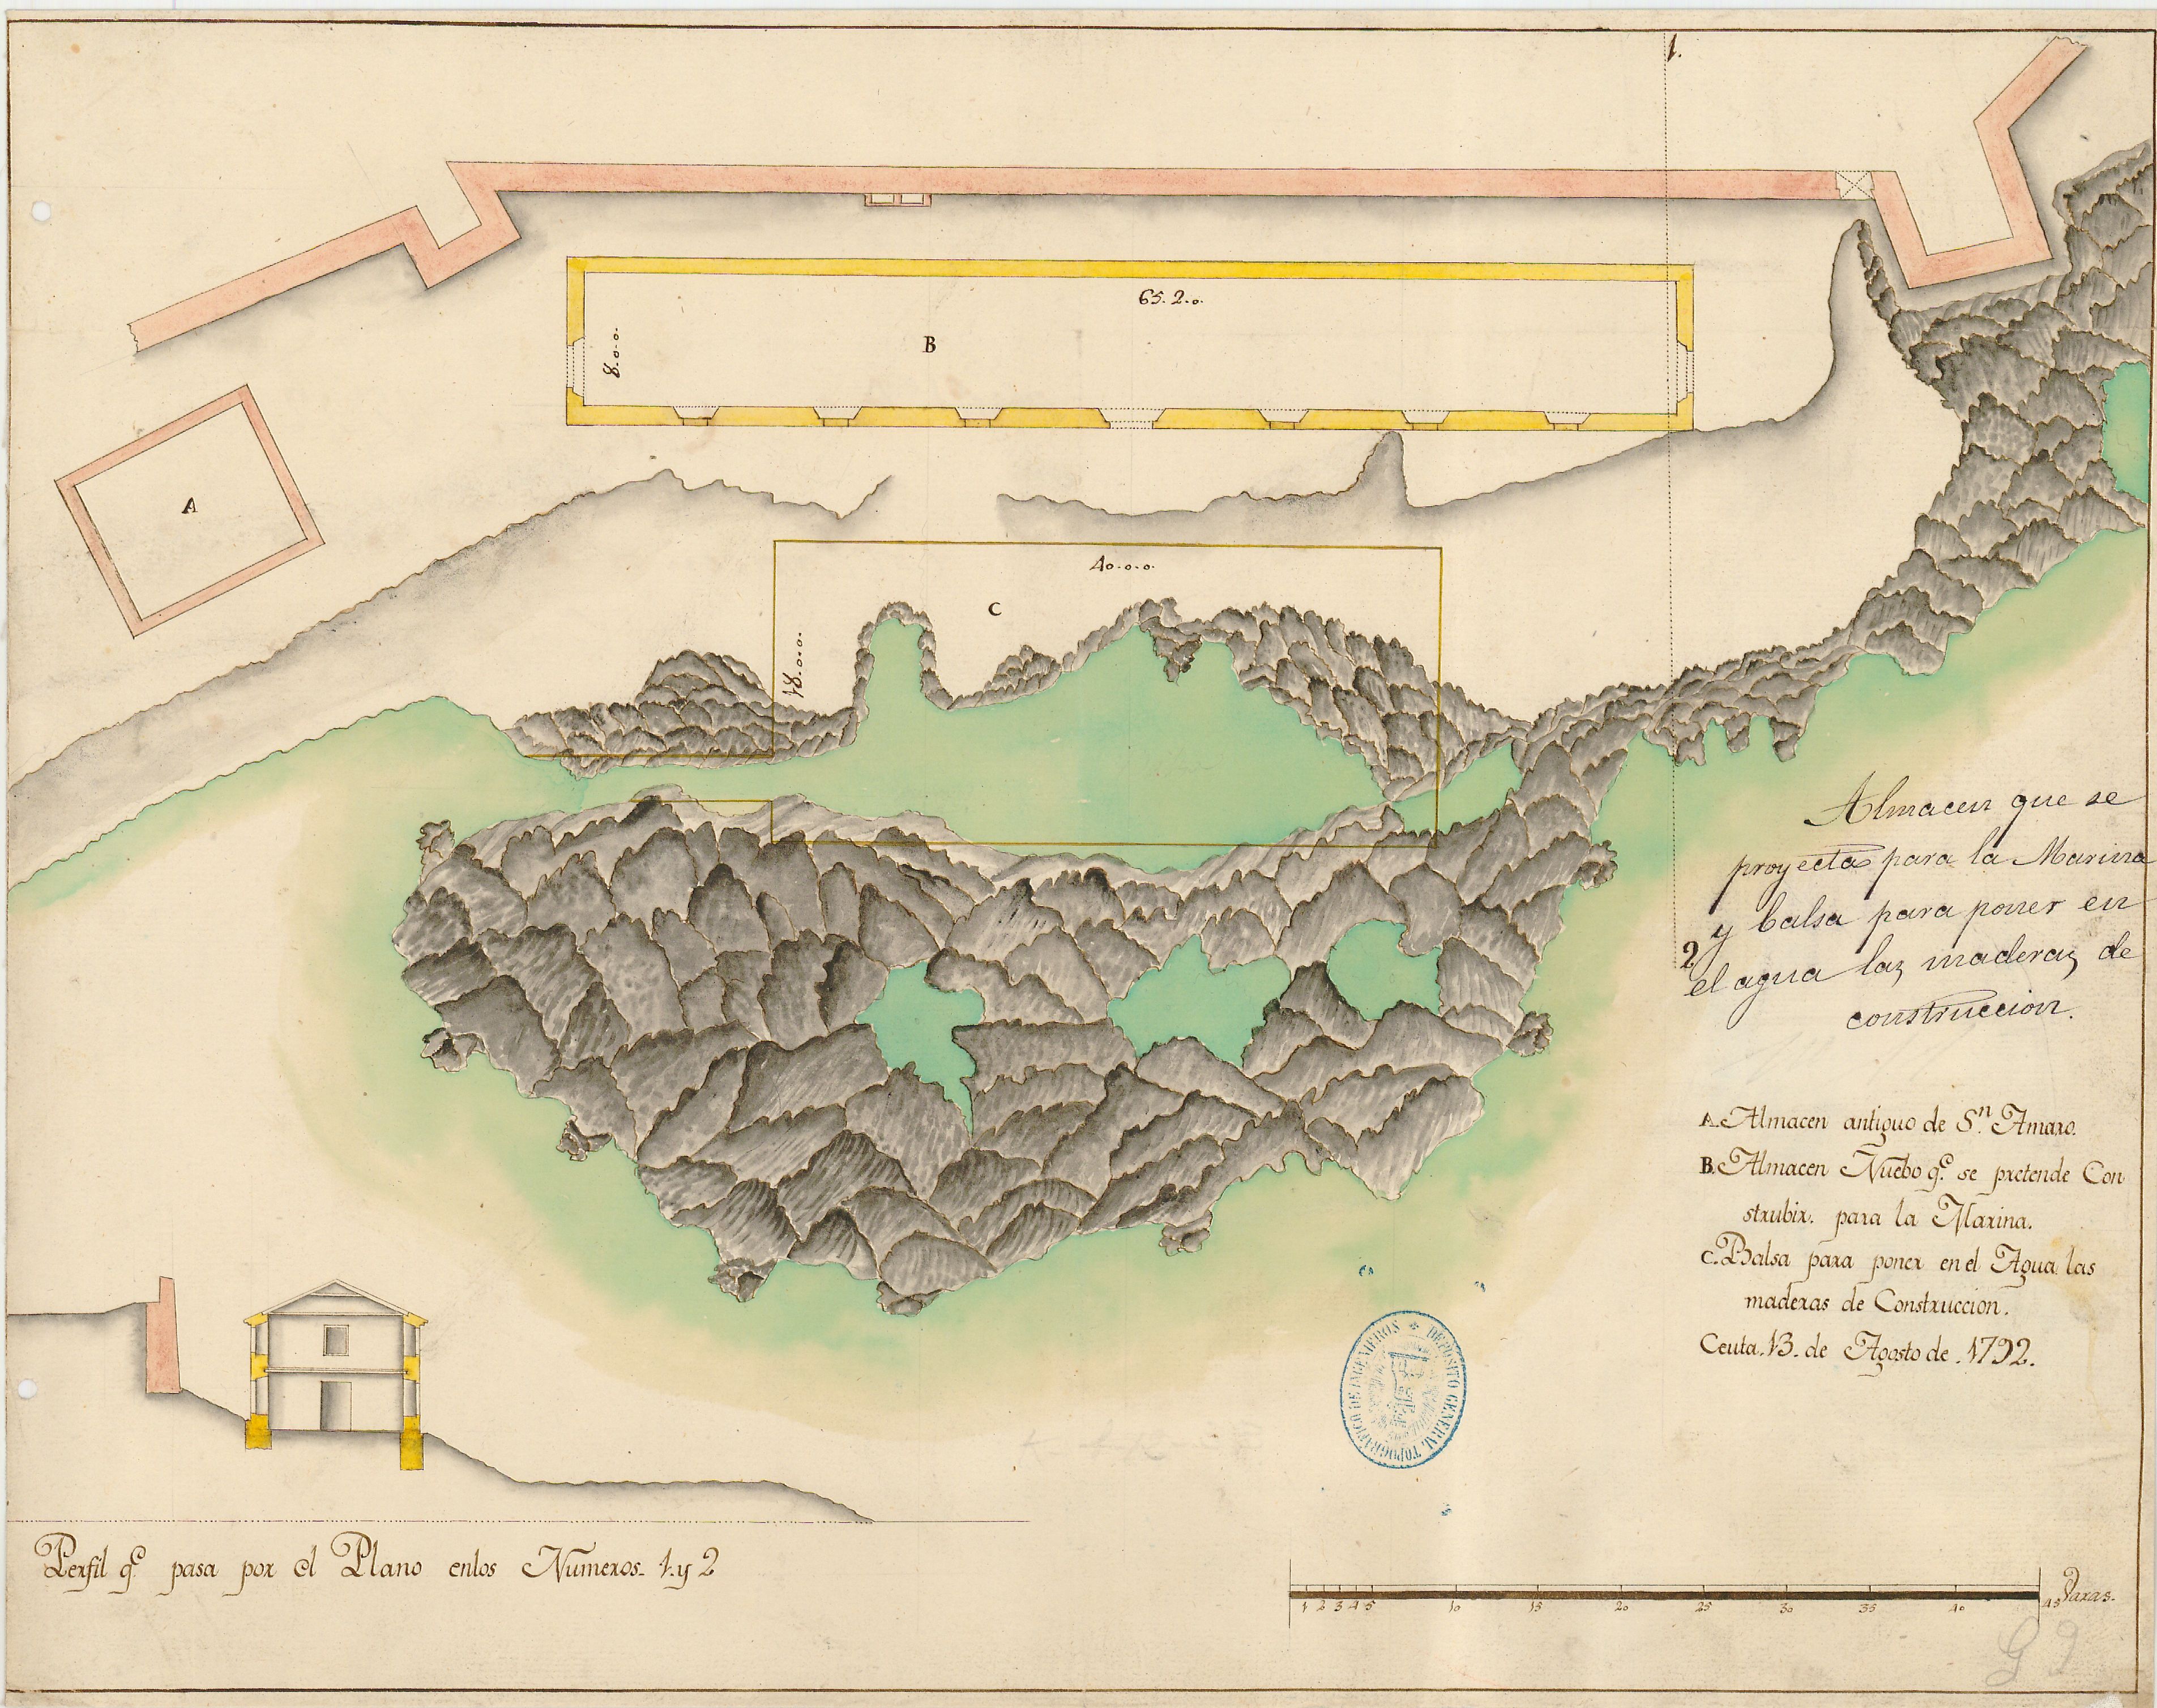 1.
65. 2..o.
8..o..o.
B
A
40..o..o.
C
18..o..o.
2
Almacen que se
proyecta para la Marina
y balsa para poner en
el agua las maderas de
construccion.
A. Almacen antiguo de Sn. Amaro.
B. Almacen Nuebo qe. se pretende Con
strubir. para la Marina.
C. Balsa para poner en el Agua las
maderas de Construccion.
Ceuta. 13. de Agosto de .1792.
DEPOSITO GENERAL TOPOGRAFICO DE INGENIEROS
Perfil qe. pasa por el Plano enlos Numeros. 1. y 2
1 2 3 4 5 10 15 20 25 30 35 40 45 Varas.
G 9